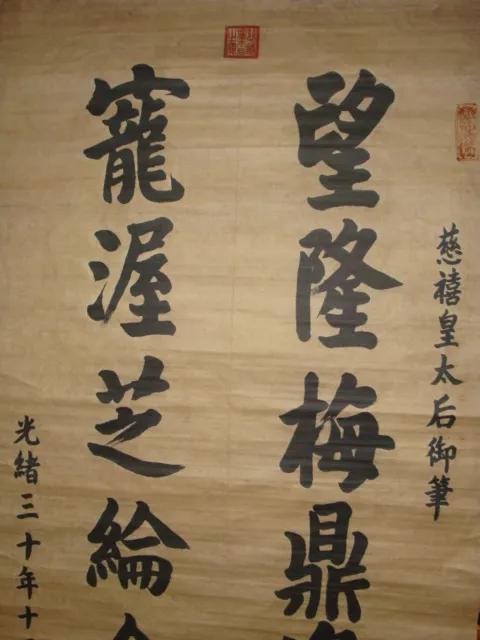 慈禧皇太后御筆
望隆梅鼎
寵渥芝綸
光緒三十年十